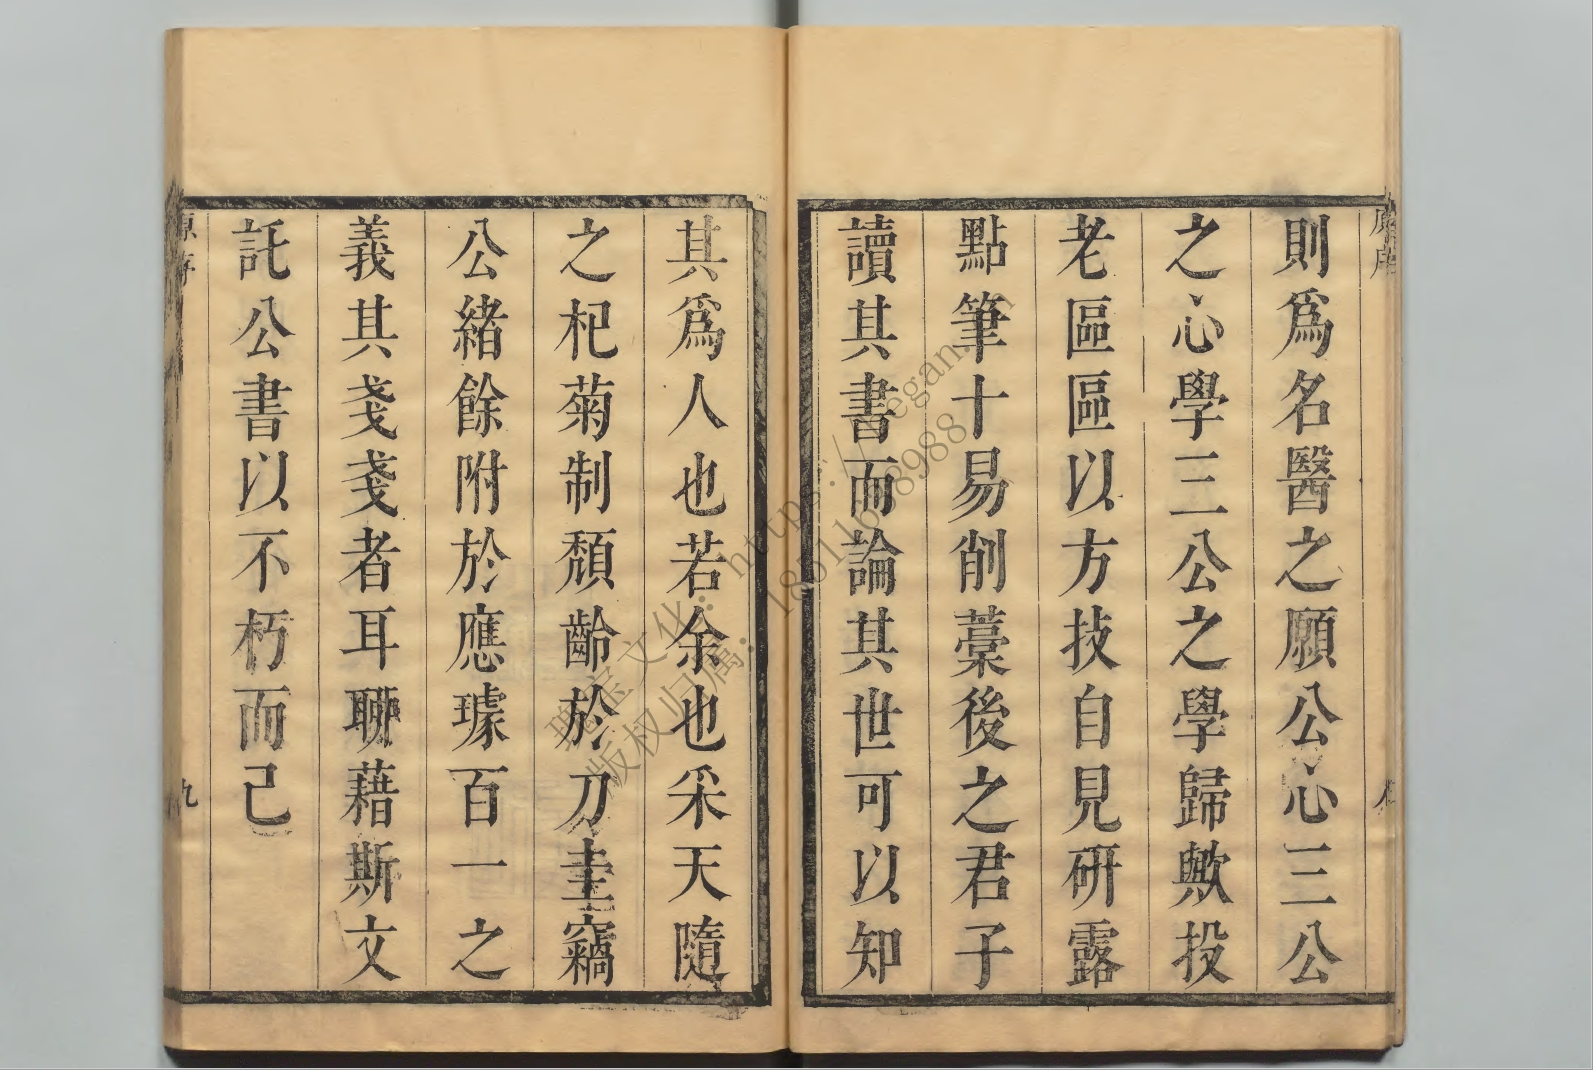 則爲名醫之願公心三公
之心學三公之學歸歟投
老區區以方技自見研露
點筆十易削藁後之君子
讀其書而論其世可以知
其爲人也若余也采天隨
之杞菊制頹齡於刀圭竊
公緒餘附於應璩百一之
義其戔戔者耳聊藉斯文
託公書以不朽而已
原序
九
版权归属：18511688988